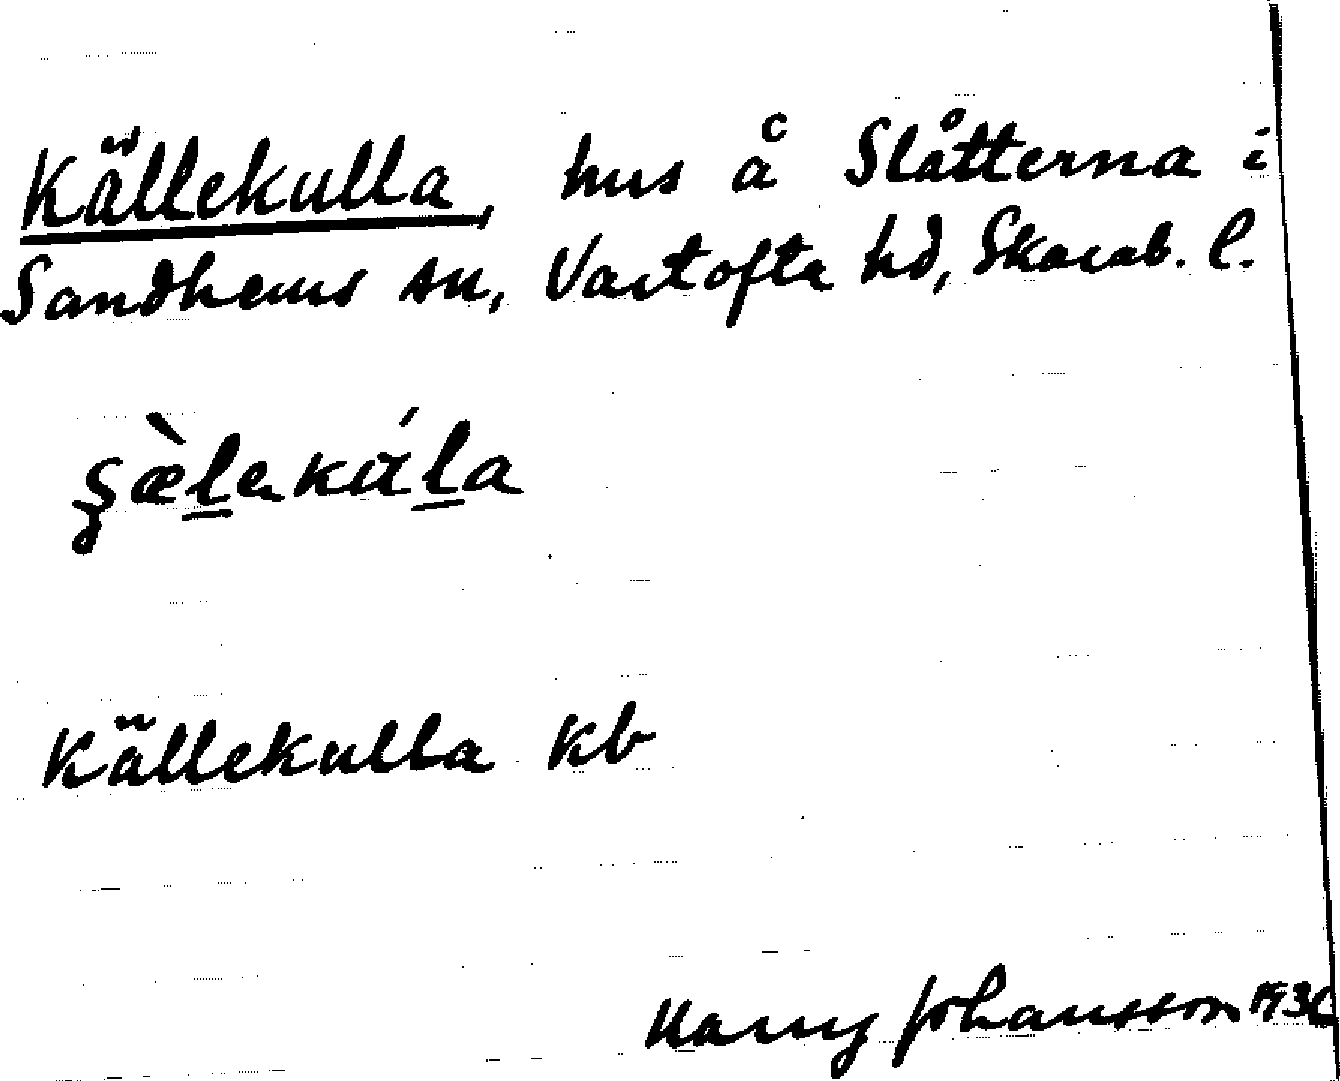 Källekulla, hus å Slåtterna i
Sandhems sn, Vartofta hd, Skarab. l.
Källekulla kb
Harry Johansson